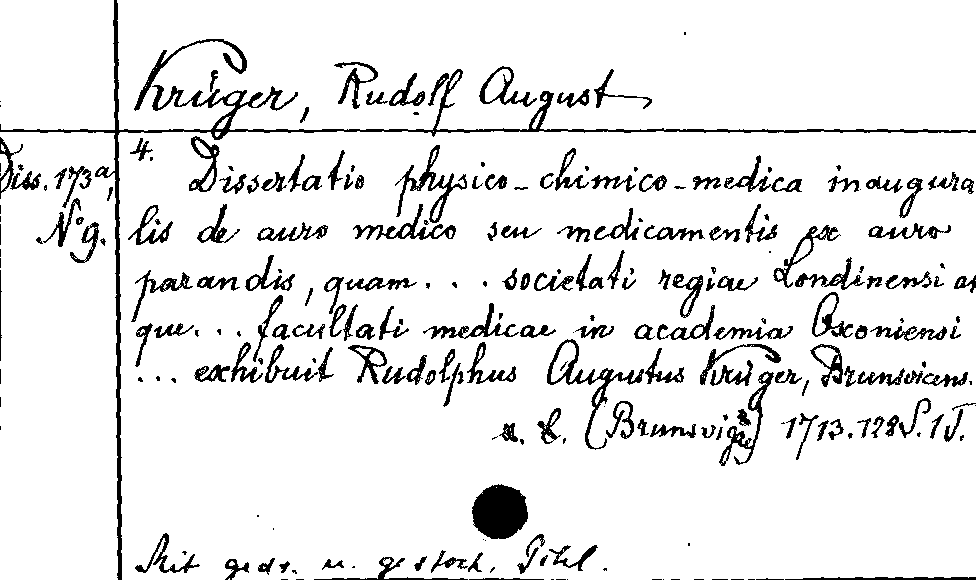 Krüger, Rudolf August
Diss. 173a,
No 9.
4. Dissertatio physico-chimico-medica inaugura
lis de auro medico seu medicamentis ex auro
parandis, quam... societati regiae Londinensi at
que... facultati medicae in academia Oxoniensi
... exhibuit Rudolphus Augustus Krüger, Brunsvicens.
(Brunsvigae) 1713. 128 S. 1 T.
Mit gedr. u. gestoch. Titel.